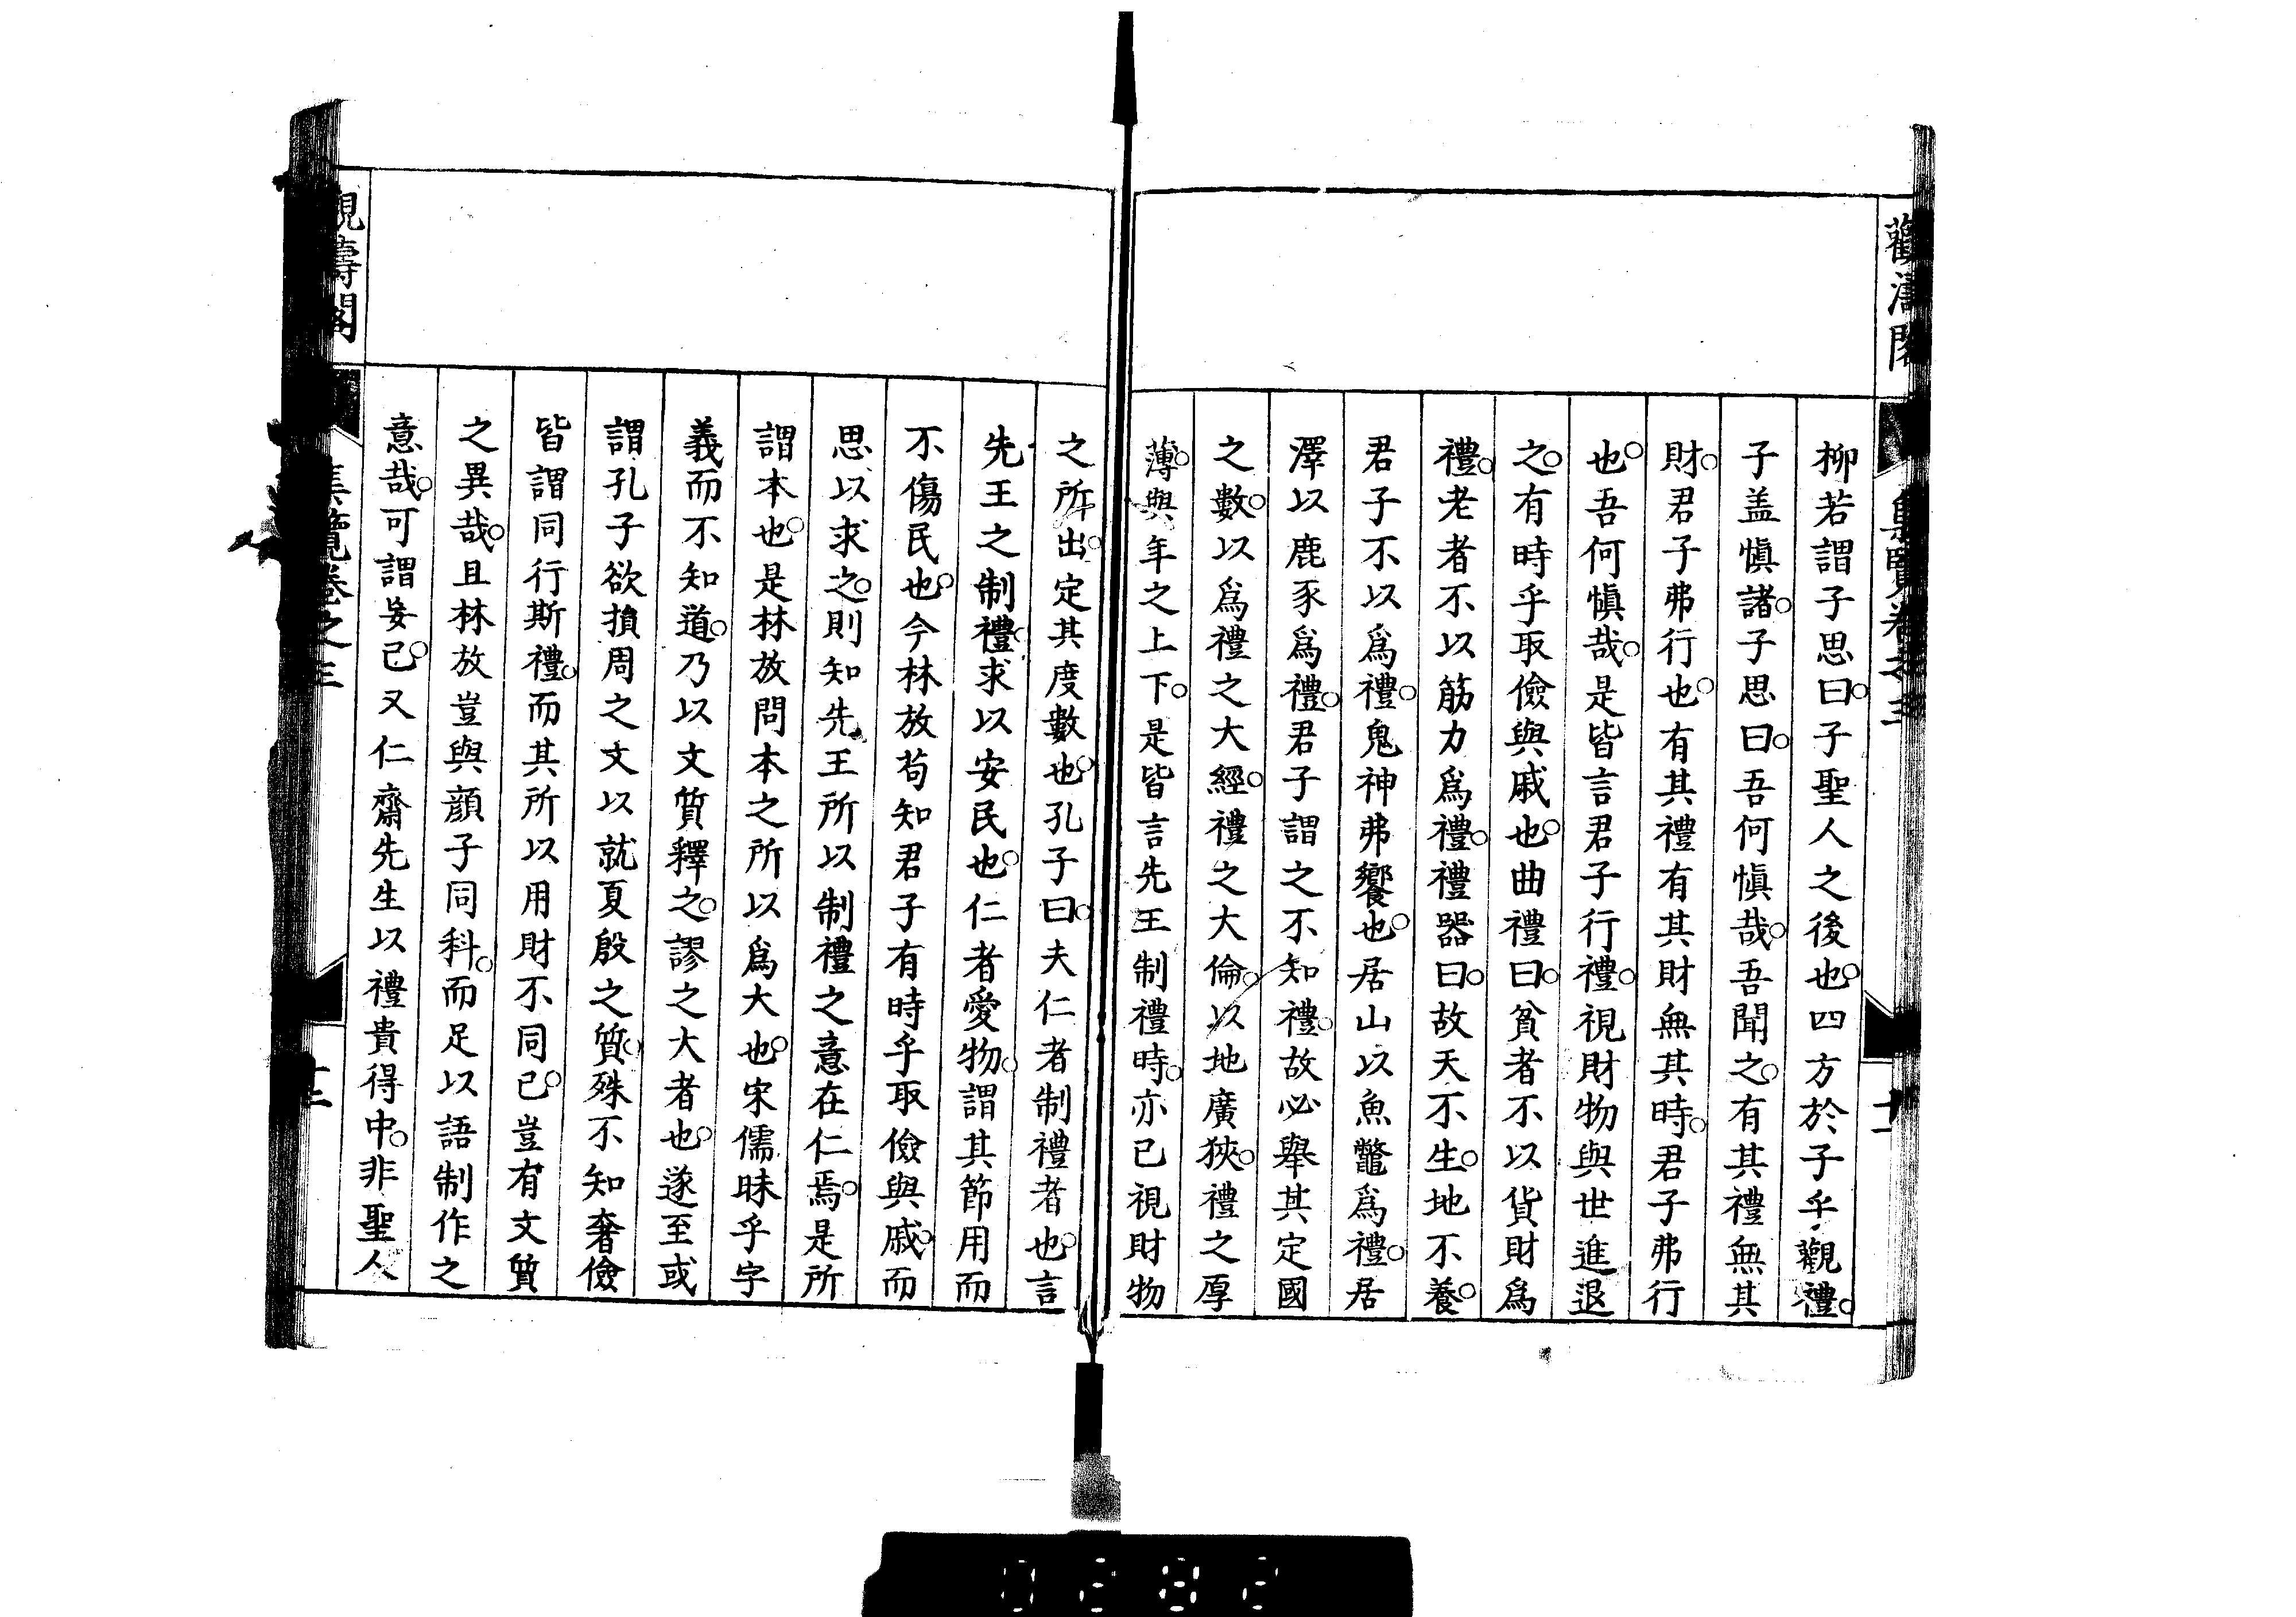 柳若謂子思曰。子聖人之後也。四方於子乎觀禮。
子盖愼諸。子思曰。吾何愼哉。吾聞之。有其禮無其
財。君子弗行也。有其禮有其財無其時。君子弗行
也。吾何愼哉。是皆言君子行禮。視財物與世進退
之。有時乎取儉與戚也。曲禮曰。貧者不以貨財爲
禮。老者不以筋力爲禮。禮器曰。故天不生。地不養。
君子不以爲禮。鬼神弗饗也。居山以魚鼈爲禮。居
澤以鹿豕爲禮。君子謂之不知禮。故必舉其定國
之數。以爲禮之大經。禮之大倫。以地廣狹。禮之厚
薄。與年之上下。是皆言先王制禮時。亦已視財物
之所出。定其度數也。孔子曰。夫仁者制禮者也。言
先王之制禮。求以安民也。仁者愛物。謂其節用而
不傷民也。今林放苟知君子有時乎取儉與戚。而
思以求之。則知先王所以制禮之意在仁焉。是所
謂本也。是林放問本之所以爲大也。宋儒昧乎字
義而不知道。乃以文質釋之。謬之大者也。遂至或
謂孔子欲損周之文以就夏殷之質。殊不知奢儉
皆謂同行斯禮。而其所以用財不同已。豈有文質
之異哉。且林放豈與顏子同科。而足以語制作之
意哉。可謂妄已。又仁齋先生以禮貴得中。非聖人
觀濤閣
集覽卷之三
十二
觀濤閣
集覽卷之三